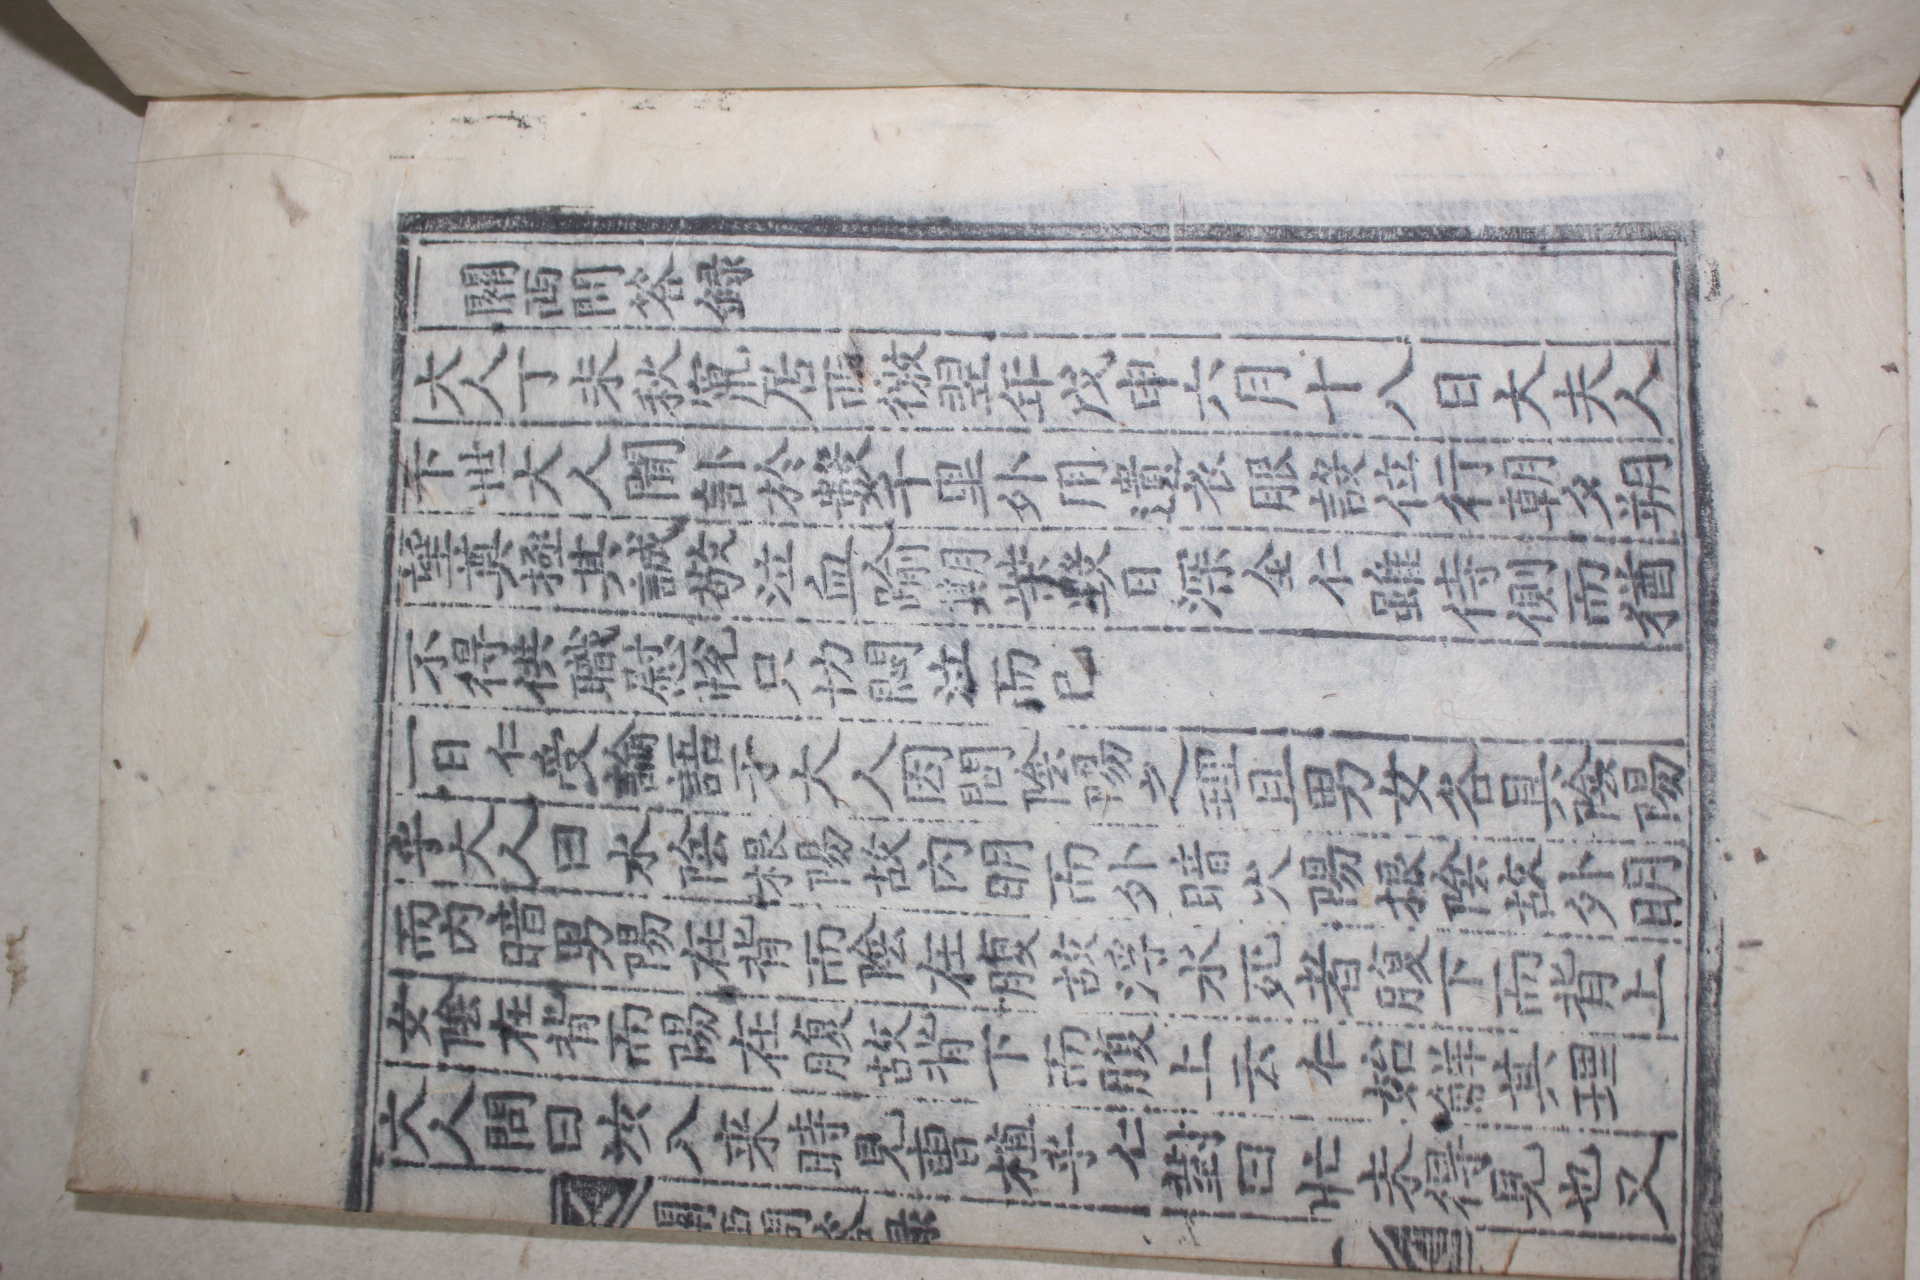 關西問答録
大人丁未秋竄居西徼翌年戊申六月十八日大夫人
下世大人聞訃於數千里外用遺衣服設位行朝夕朔
望奠極其誠敬泣血踰期柴毀日深全仁雖侍側而猶
不得供職慰悅只切悶泣而已
一日仁受論語于大人因問陰陽之理且男女各具陰陽
乎大人曰水陰根陽故內明而外暗火陽根陰故外明
而內暗男陽在背而陰在腹故浮水死者腹下而背上
女陰在背而陽在腹故背下而腹上云仁始解其理
大人問曰汝入来時見曺植乎仁對曰忙未得見也又
關西問答録
一